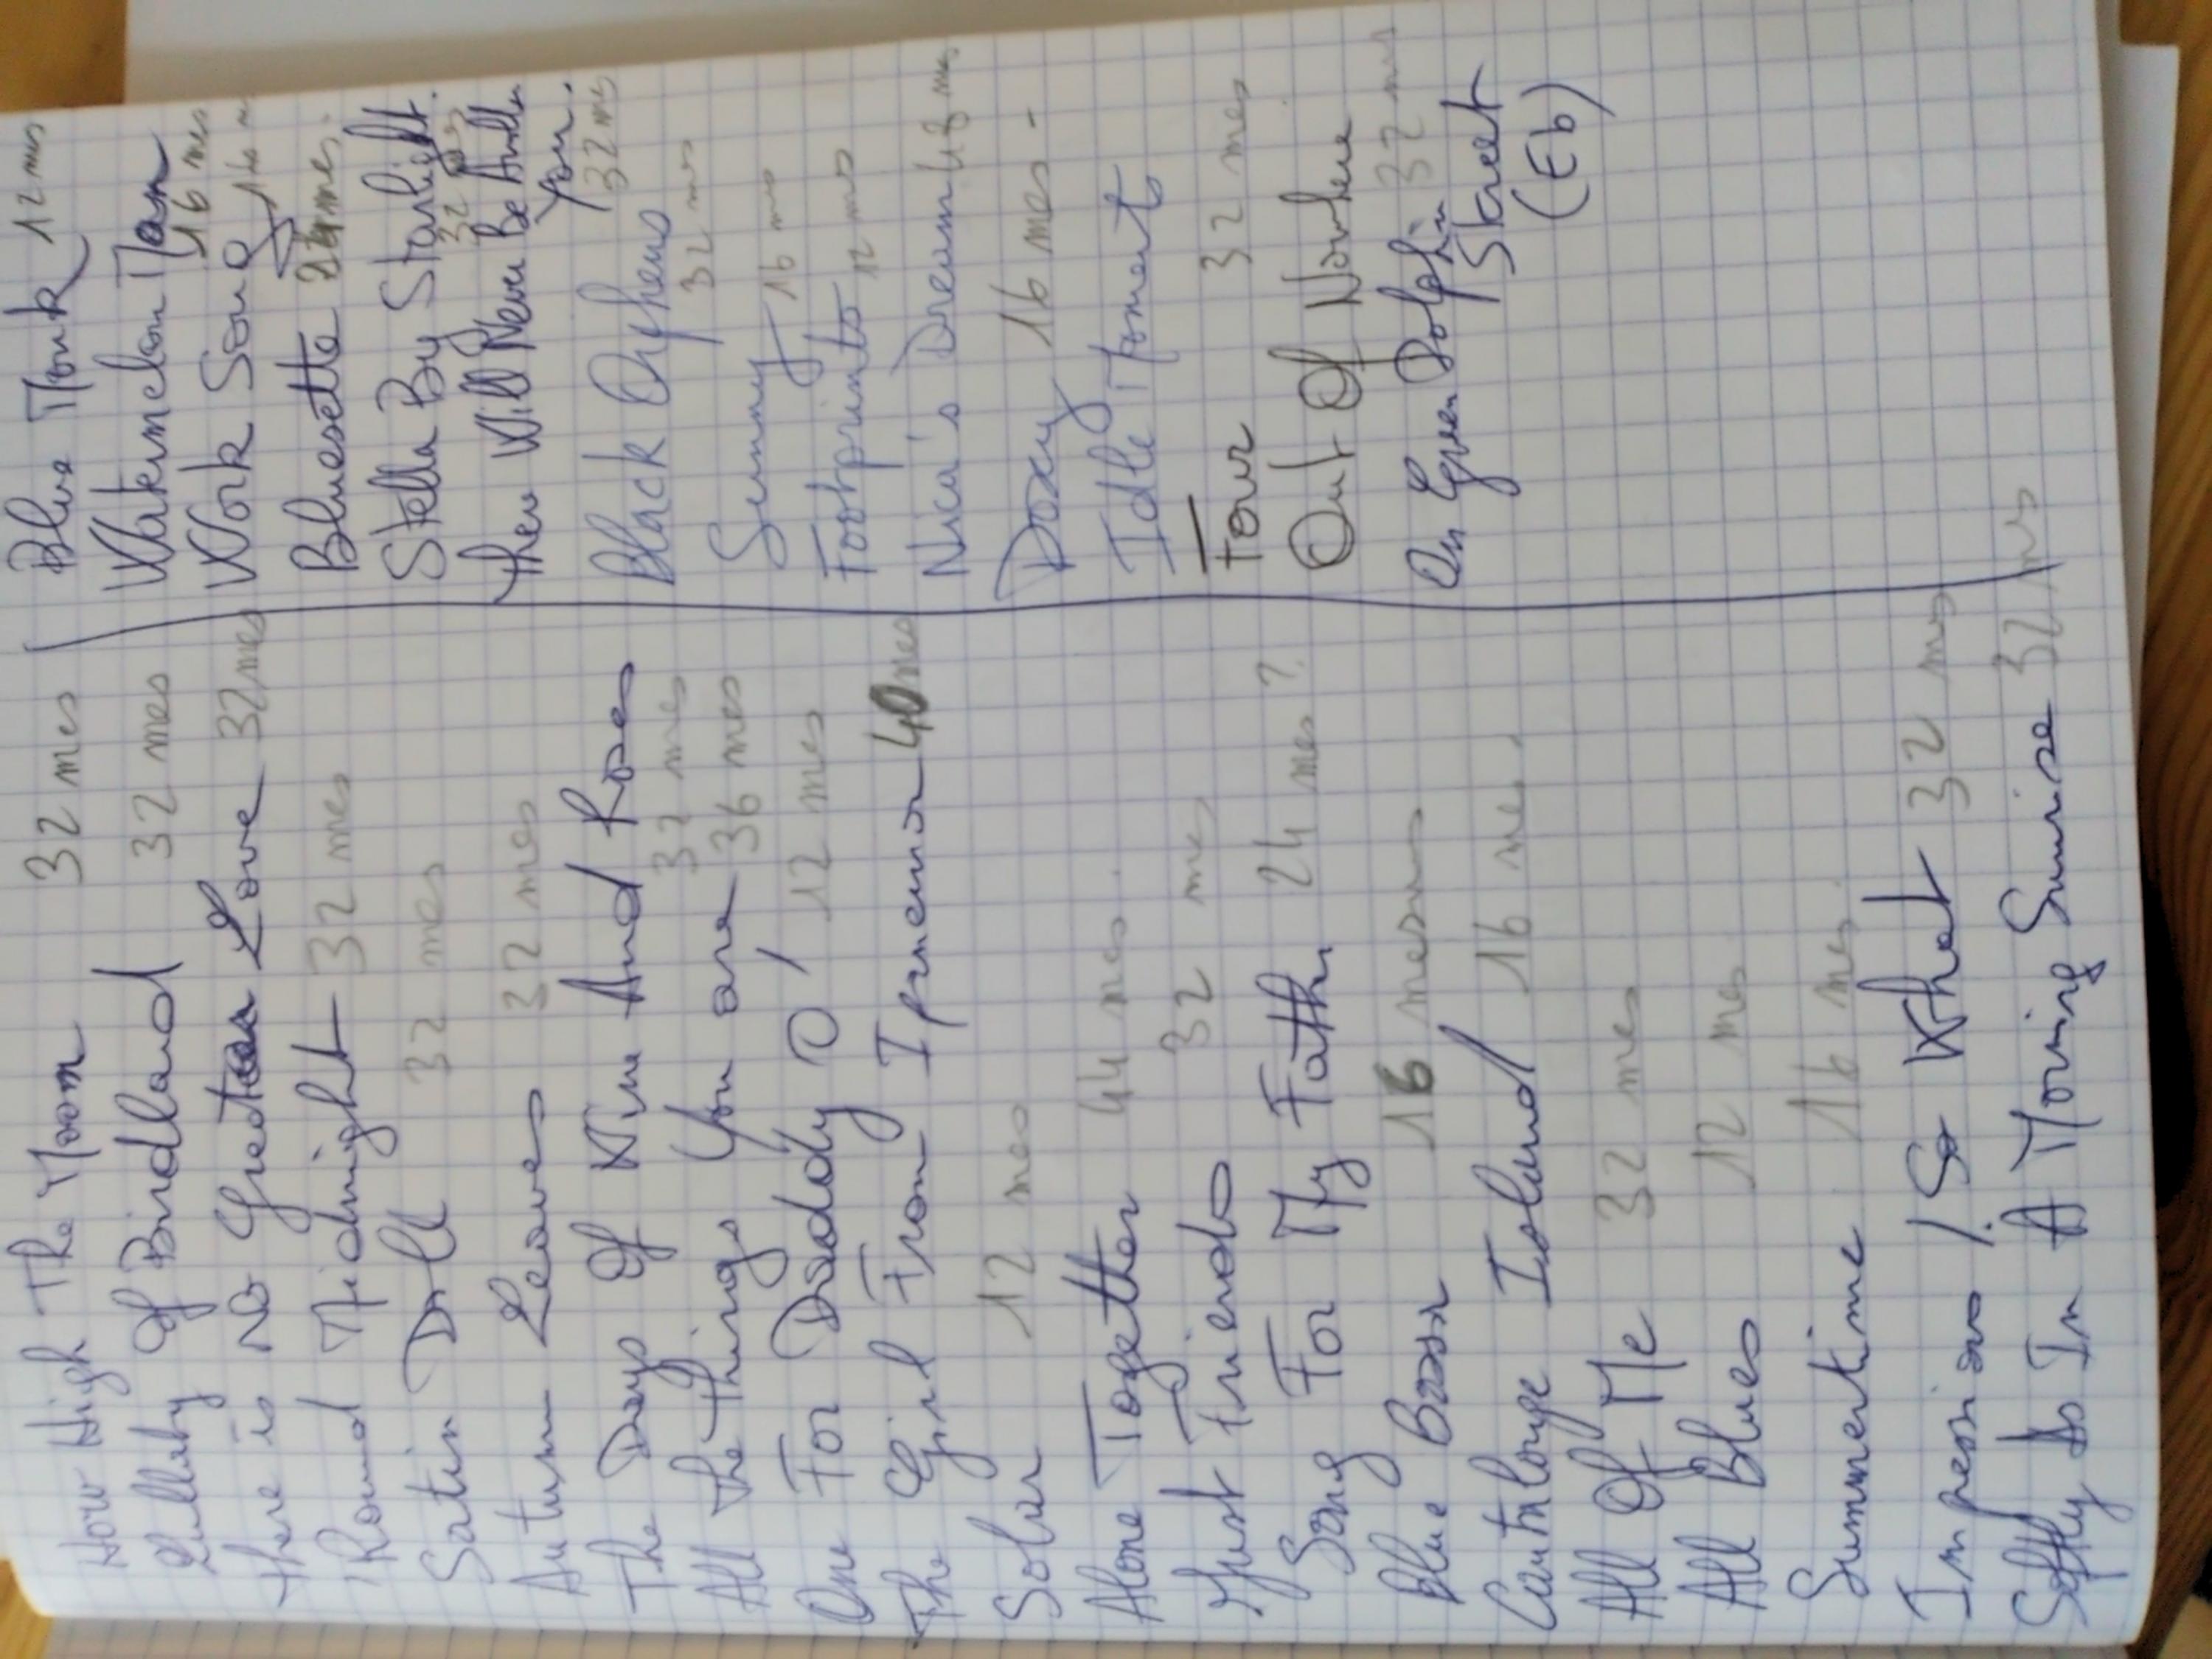 How High The Moon 32 mes
Lullaby Of Birdland 32 mes
There is No Greater Love 32 mes
'Round Midnight 32 mes
Satin Doll 32 mes
Autumn Leaves 32 mes
The Days Of Wine And Roses
32 mes
All The Things You are 36 mes
One For Daddy O' 12 mes
The Girl From Ipanema 40 mes
Solar 12 mes
Alone Together 44 mes.
Just Friends 32 mes
Song For My Father 24 mes ?
Blue Bossa 16 mesures
Cantaloupe Island 16 mes.
All Of Me 32 mes
All Blues 12 mes
Summertime 16 mes.
Impressions / So What 32 mes
Softly As In A Morning Sunrise 32 mes
Blue Monk 12 mes
Watermelon Man
16 mes
Work Song 16 m
Bluesette 24 mes.
Stella By Starlight.
32 mes
There Will Never Be Another
You.
32 mes
Black Orpheus
32 mes
Sunny 16 mes
Footprints 12 mes
Nica's Dream 48 mes
Doxy 16 mes -
Idle Moments
Four 32 mes
Out Of Nowhere
32 mes
On Green Dolphin
Street
(Eb)